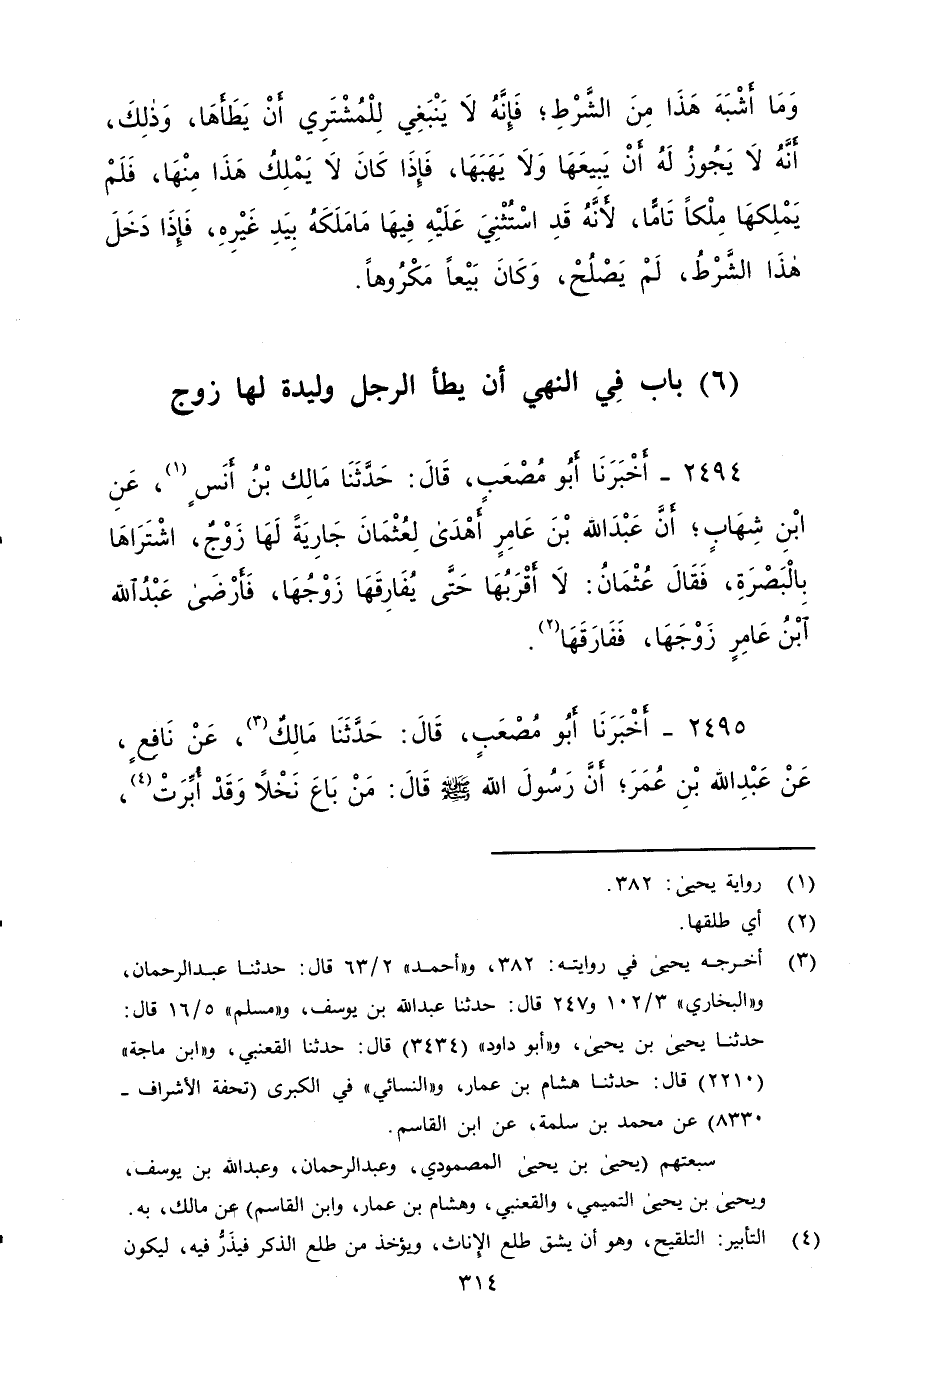 وَمَا أَشْبَهَ هَذَا مِنَ الشَّرْطِ؛ فَإِنَّهُ لَا يَنْبَغِي لِلْمُشْتَرِي أَنْ يَطَأَهَا، وَذٰلِكَ،
أَنَّهُ لَا يَجُوزُ لَهُ أَنْ يَبِيعَهَا وَلَا يَهَبَهَا، فَإِذَا كَانَ لَا يَمْلِكُ هَذَا مِنْهَا، فَلَمْ
يَمْلِكهَا مِلْكاً تَامًّا، لأَنَّهُ قَدِ اسْتُثْنِيَ عَلَيْهِ فِيهَا مَامَلَكَهُ بِيَدِ غَيْرِهِ، فَإِذَا دَخَلَ
هٰذَا الشَّرْطُ، لَمْ يَصْلُحْ، وَكَانَ بَيْعاً مَكْرُوهاً.
(٦) باب فِي النهي أن يطأ الرجل وليدة لها زوج
٢٤٩٤ - أَخْبَرَنَا أَبُو مُصْعَبٍ، قَالَ: حَدَّثَنَا مَالِك بْنُ أَنَسٍ(١)، عَنِ
ابْنِ شِهَابٍ؛ أَنَّ عَبْدَالله بْنَ عَامِرٍ أَهْدَىٰ لِعُثْمَانَ جَارِيَةً لَهَا زَوْجٌ، اشْتَرَاهَا
بِالْبَصْرَةِ، فَقَالَ عُثْمَانُ: لَا أَقْرَبُهَا حَتَّى يُفَارِقَهَا زَوْجُهَا، فَأَرْضَىٰ عَبْدُٱلله
ٱبْنُ عَامِرٍ زَوْجَهَا، فَفَارَقَهَا(٢).
٢٤٩٥ - أَخْبَرَنَا أَبُو مُصْعَبٍ، قَالَ: حَدَّثَنَا مَالِكٌ(٣)، عَنْ نَافِعٍ،
عَنْ عَبْدِالله بْنِ عُمَرَ؛ أَنَّ رَسُولَ الله ﷺ قَالَ: مَنْ بَاعَ نَخْلًا وَقَدْ أُبِّرَتْ(٤)،
(١) رواية يحيىٰ: ٣٨٢.
(٢) أي طلقها.
(٣) أخرجه يحيىٰ في روايته: ٣٨٢، و«أحمد» ٦٣/٢ قال: حدثنا عبدالرحمان،
و«البخاري» ١٠٢/٣ و٢٤٧ قال: حدثنا عبدالله بن يوسف، و«مسلم» ١٦/٥ قال:
حدثنا يحيىٰ بن يحيىٰ، و«أبو داود» (٣٤٣٤) قال: حدثنا القعنبي، و«ابن ماجة»
(٢٢١٠) قال: حدثنا هشام بن عمار، و«النسائي» في الكبرى (تحفة الأشراف -
٨٣٣٠) عن محمد بن سلمة، عن ابن القاسم.
سبعتهم (يحيىٰ بن يحيىٰ المصمودي، وعبدالرحمان، وعبدالله بن يوسف،
ويحيىٰ بن يحيىٰ التميمي، والقعنبي، وهشام بن عمار، وابن القاسم) عن مالك، به.
(٤) التأبير: التلقيح، وهو أن يشق طلع الإناث، ويؤخذ من طلع الذكر فيذَرُّ فيه، ليكون
٣١٤